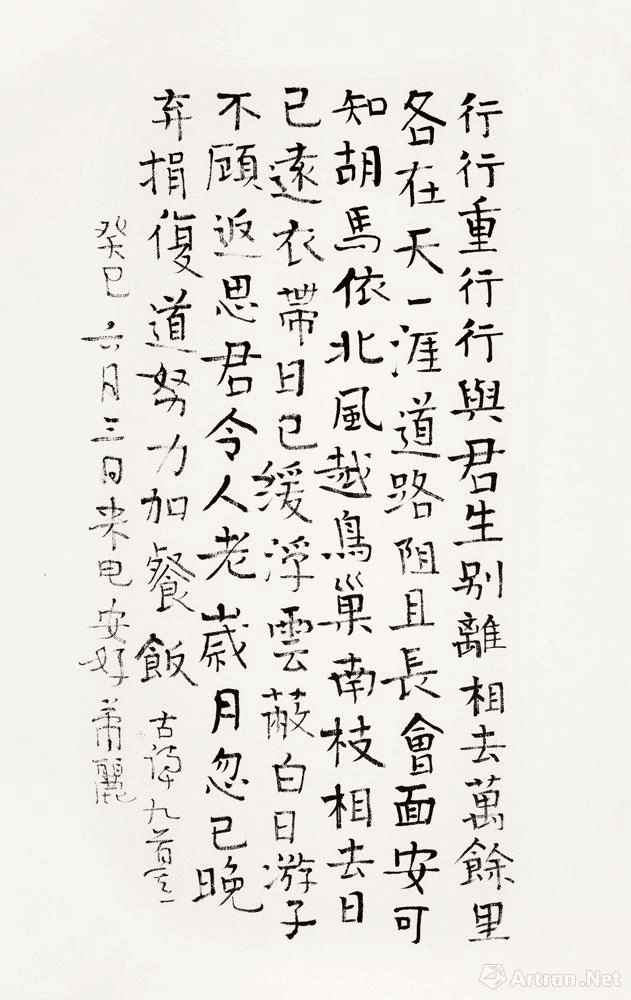 行行重行行與君生别離相去萬餘里
各在天一涯道路阻且長會面安可
知胡馬依北風越鳥巢南枝相去日
已遠衣帶日已緩浮雲蔽白日游子
不顧返思君令人老歲月忽已晚
弃捐復道努力加餐飯 古詩九首之一
癸巳六月三日来电安好
Artron.Net